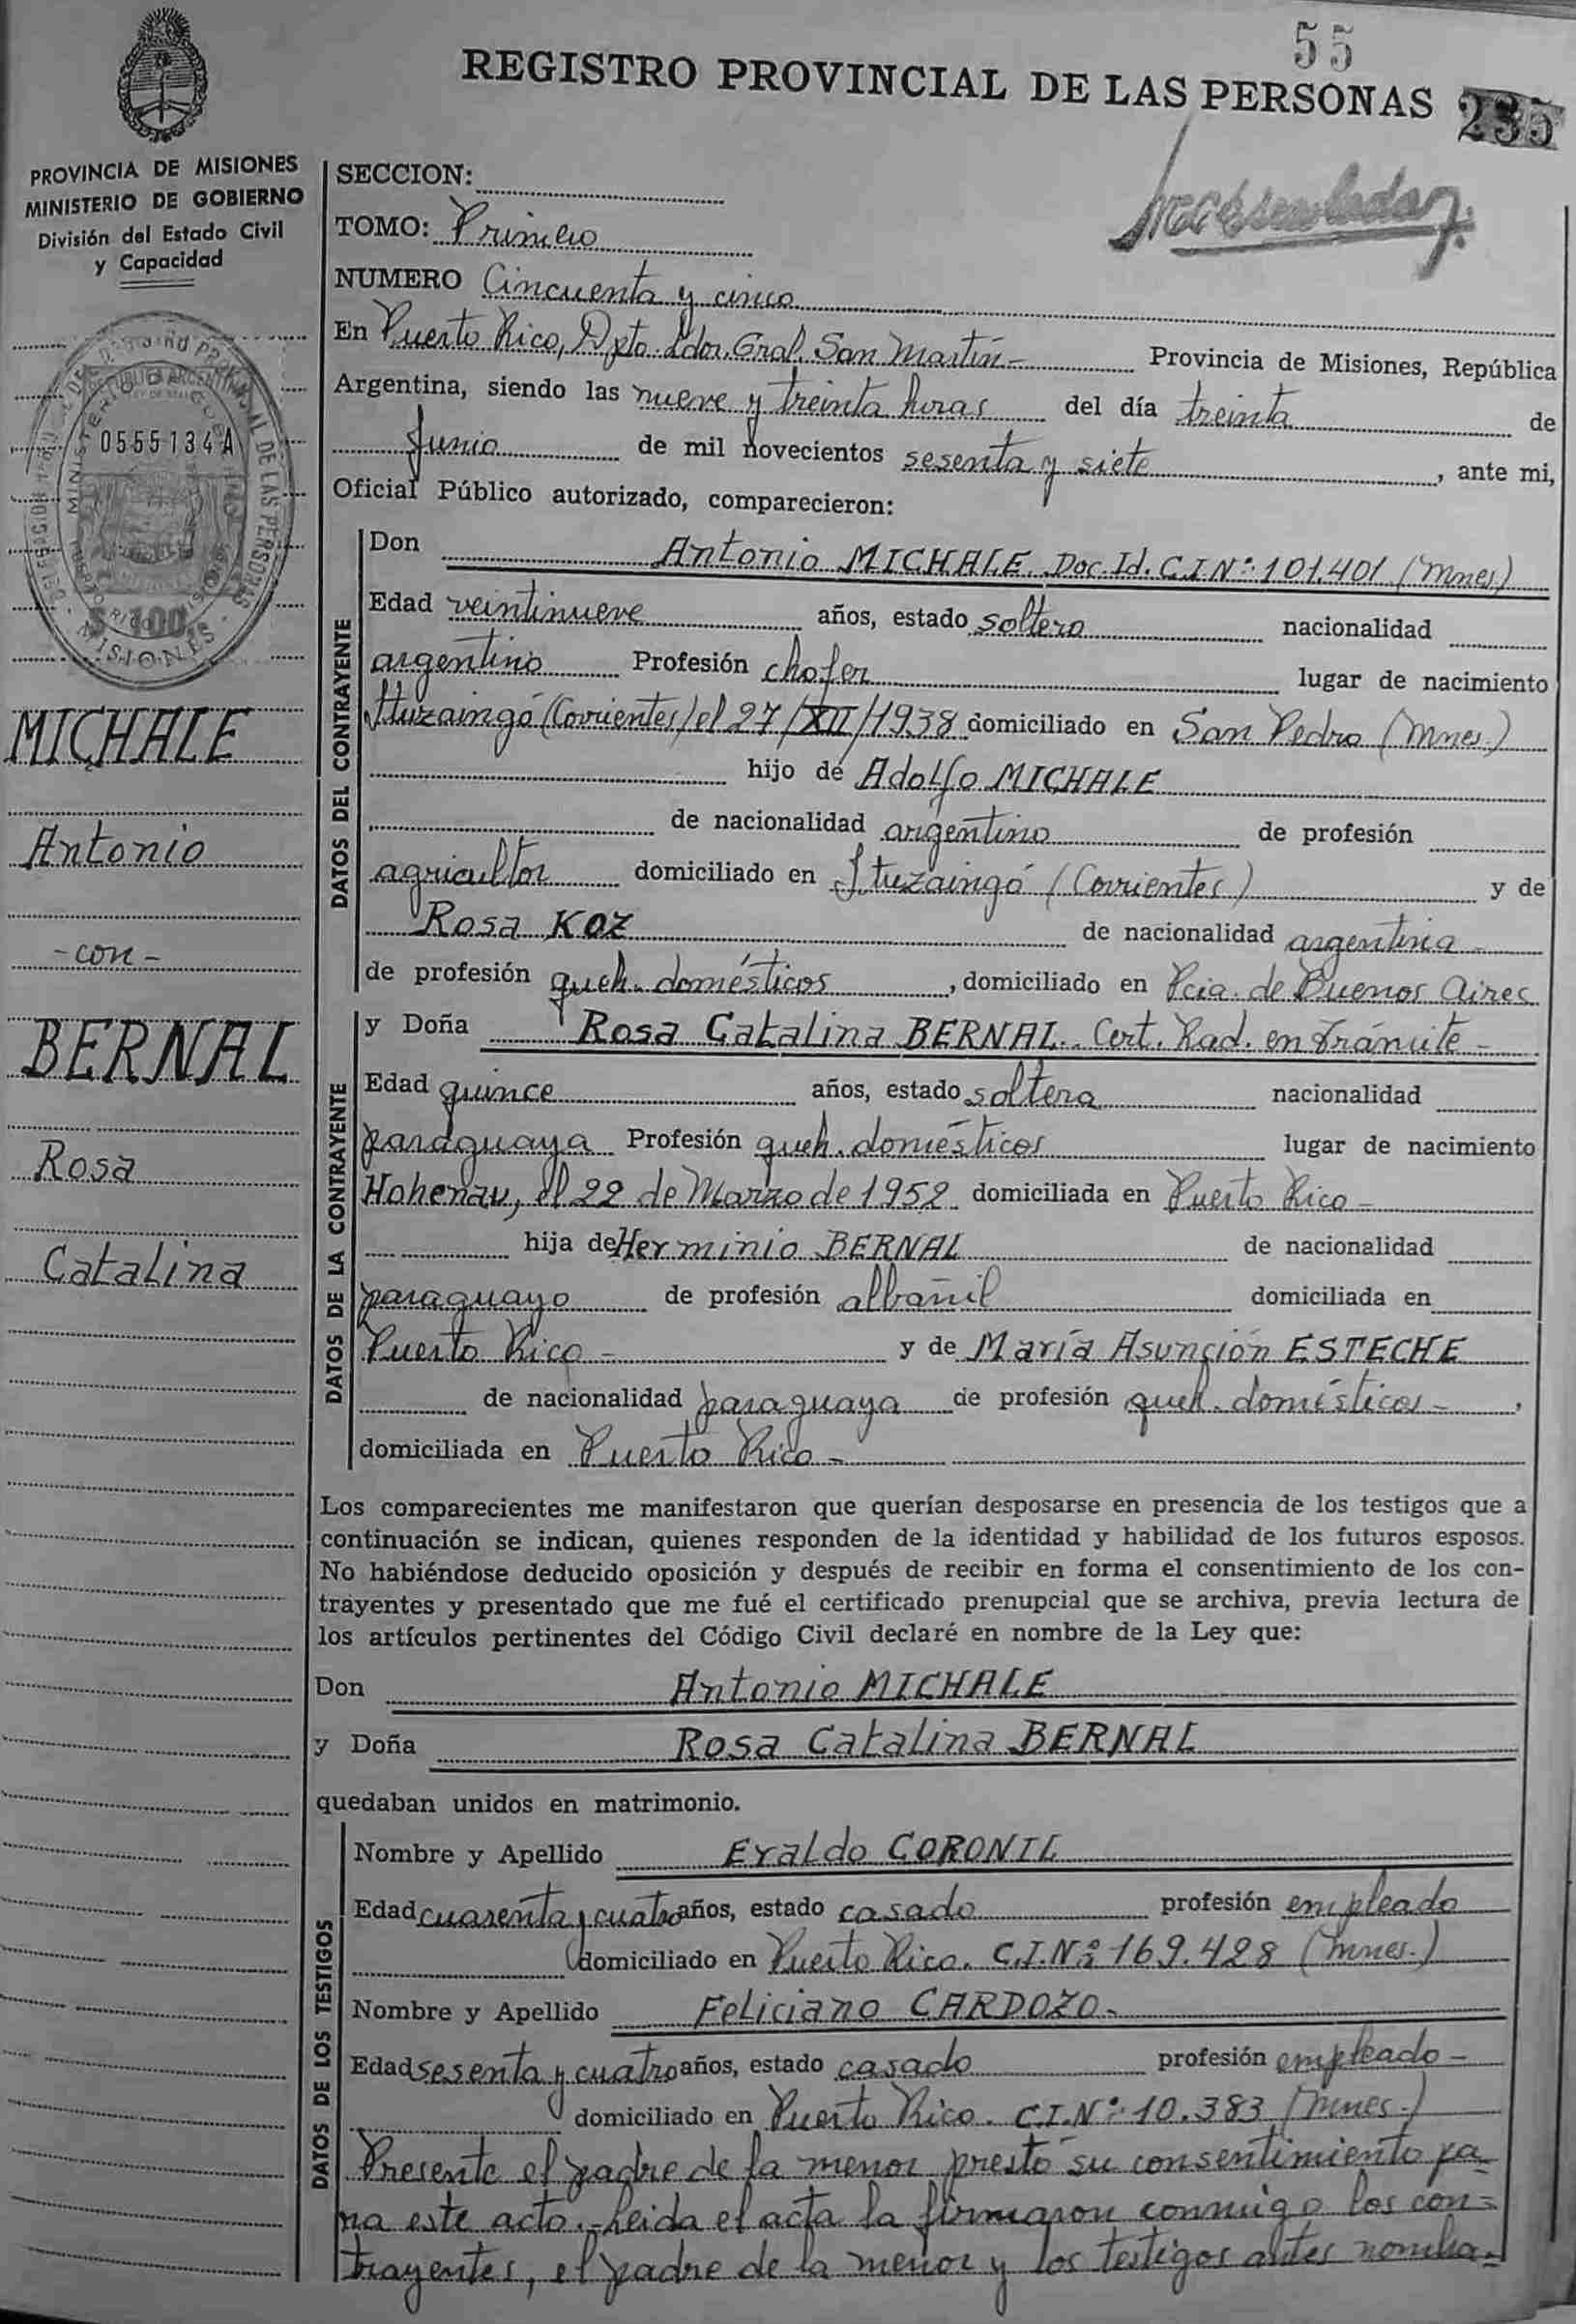 55
REGISTRO PROVINCIAL DE LAS PERSONAS 235
PROVINCIA DE MISIONES
MINISTERIO DE GOBIERNO
División del Estado Civil
y Capacidad
0555134A
$ 100
MISIONES
MICHALE
Antonio
- con -
BERNAL
Rosa
Catalina
SECCION:
TOMO: Primero
NUMERO Cincuenta y cinco
En Puerto Rico, Dpto. Ldor. Gral. San Martín - Provincia de Misiones, República
Argentina, siendo las nueve y treinta horas del día treinta de
Junio de mil novecientos sesenta y siete, ante mi,
Oficial Público autorizado, comparecieron:
DATOS DEL CONTRAYENTE
Don Antonio MICHALE Doc. Id. C.I Nº 101.401 (Mnes)
Edad veintinueve años, estado soltero nacionalidad
argentino Profesión chofer lugar de nacimiento
Ituzaingó (Corrientes) el 27/XII/1938 domiciliado en San Pedro (Mnes.)
hijo de Adolfo MICHALE
de nacionalidad argentino de profesión
agricultor domiciliado en Ituzaingó (Corrientes) y de
Rosa KOZ de nacionalidad argentina -
de profesión queh. domésticos, domiciliado en Pcia. de Buenos Aires
DATOS DE LA CONTRAYENTE
y Doña Rosa Catalina BERNAL. Cert. Rad. en trámite -
Edad quince años, estado soltera nacionalidad
paraguaya Profesión queh. domésticos lugar de nacimiento
Hohenau, el 22 de Marzo de 1952 domiciliada en Puerto Rico -
hija de Herminio BERNAL de nacionalidad
paraguayo de profesión albañil domiciliada en
Puerto Rico - y de María Asunción ESTECHE
de nacionalidad paraguaya de profesión queh. domésticos -,
domiciliada en Puerto Rico -
Los comparecientes me manifestaron que querían desposarse en presencia de los testigos que a
continuación se indican, quienes responden de la identidad y habilidad de los futuros esposos.
No habiéndose deducido oposición y después de recibir en forma el consentimiento de los con-
trayentes y presentado que me fué el certificado prenupcial que se archiva, previa lectura de
los artículos pertinentes del Código Civil declaré en nombre de la Ley que:
Don Antonio MICHALE
y Doña Rosa Catalina BERNAL
quedaban unidos en matrimonio.
DATOS DE LOS TESTIGOS
Nombre y Apellido Eraldo CORONIL
Edad cuarenta y cuatro años, estado casado profesión empleado
domiciliado en Puerto Rico. C.I.Nº 169.428 (Mnes.)
Nombre y Apellido Feliciano CARDOZO -
Edad sesenta y cuatro años, estado casado profesión empleado -
domiciliado en Puerto Rico. C.I.Nº 10.383 (Mnes.)
Presente el padre de la menor prestó su consentimiento pa-
ra este acto. - Leida el acta la firmaron conmigo los con-
trayentes, el padre de la menor y los testigos antes nombra-